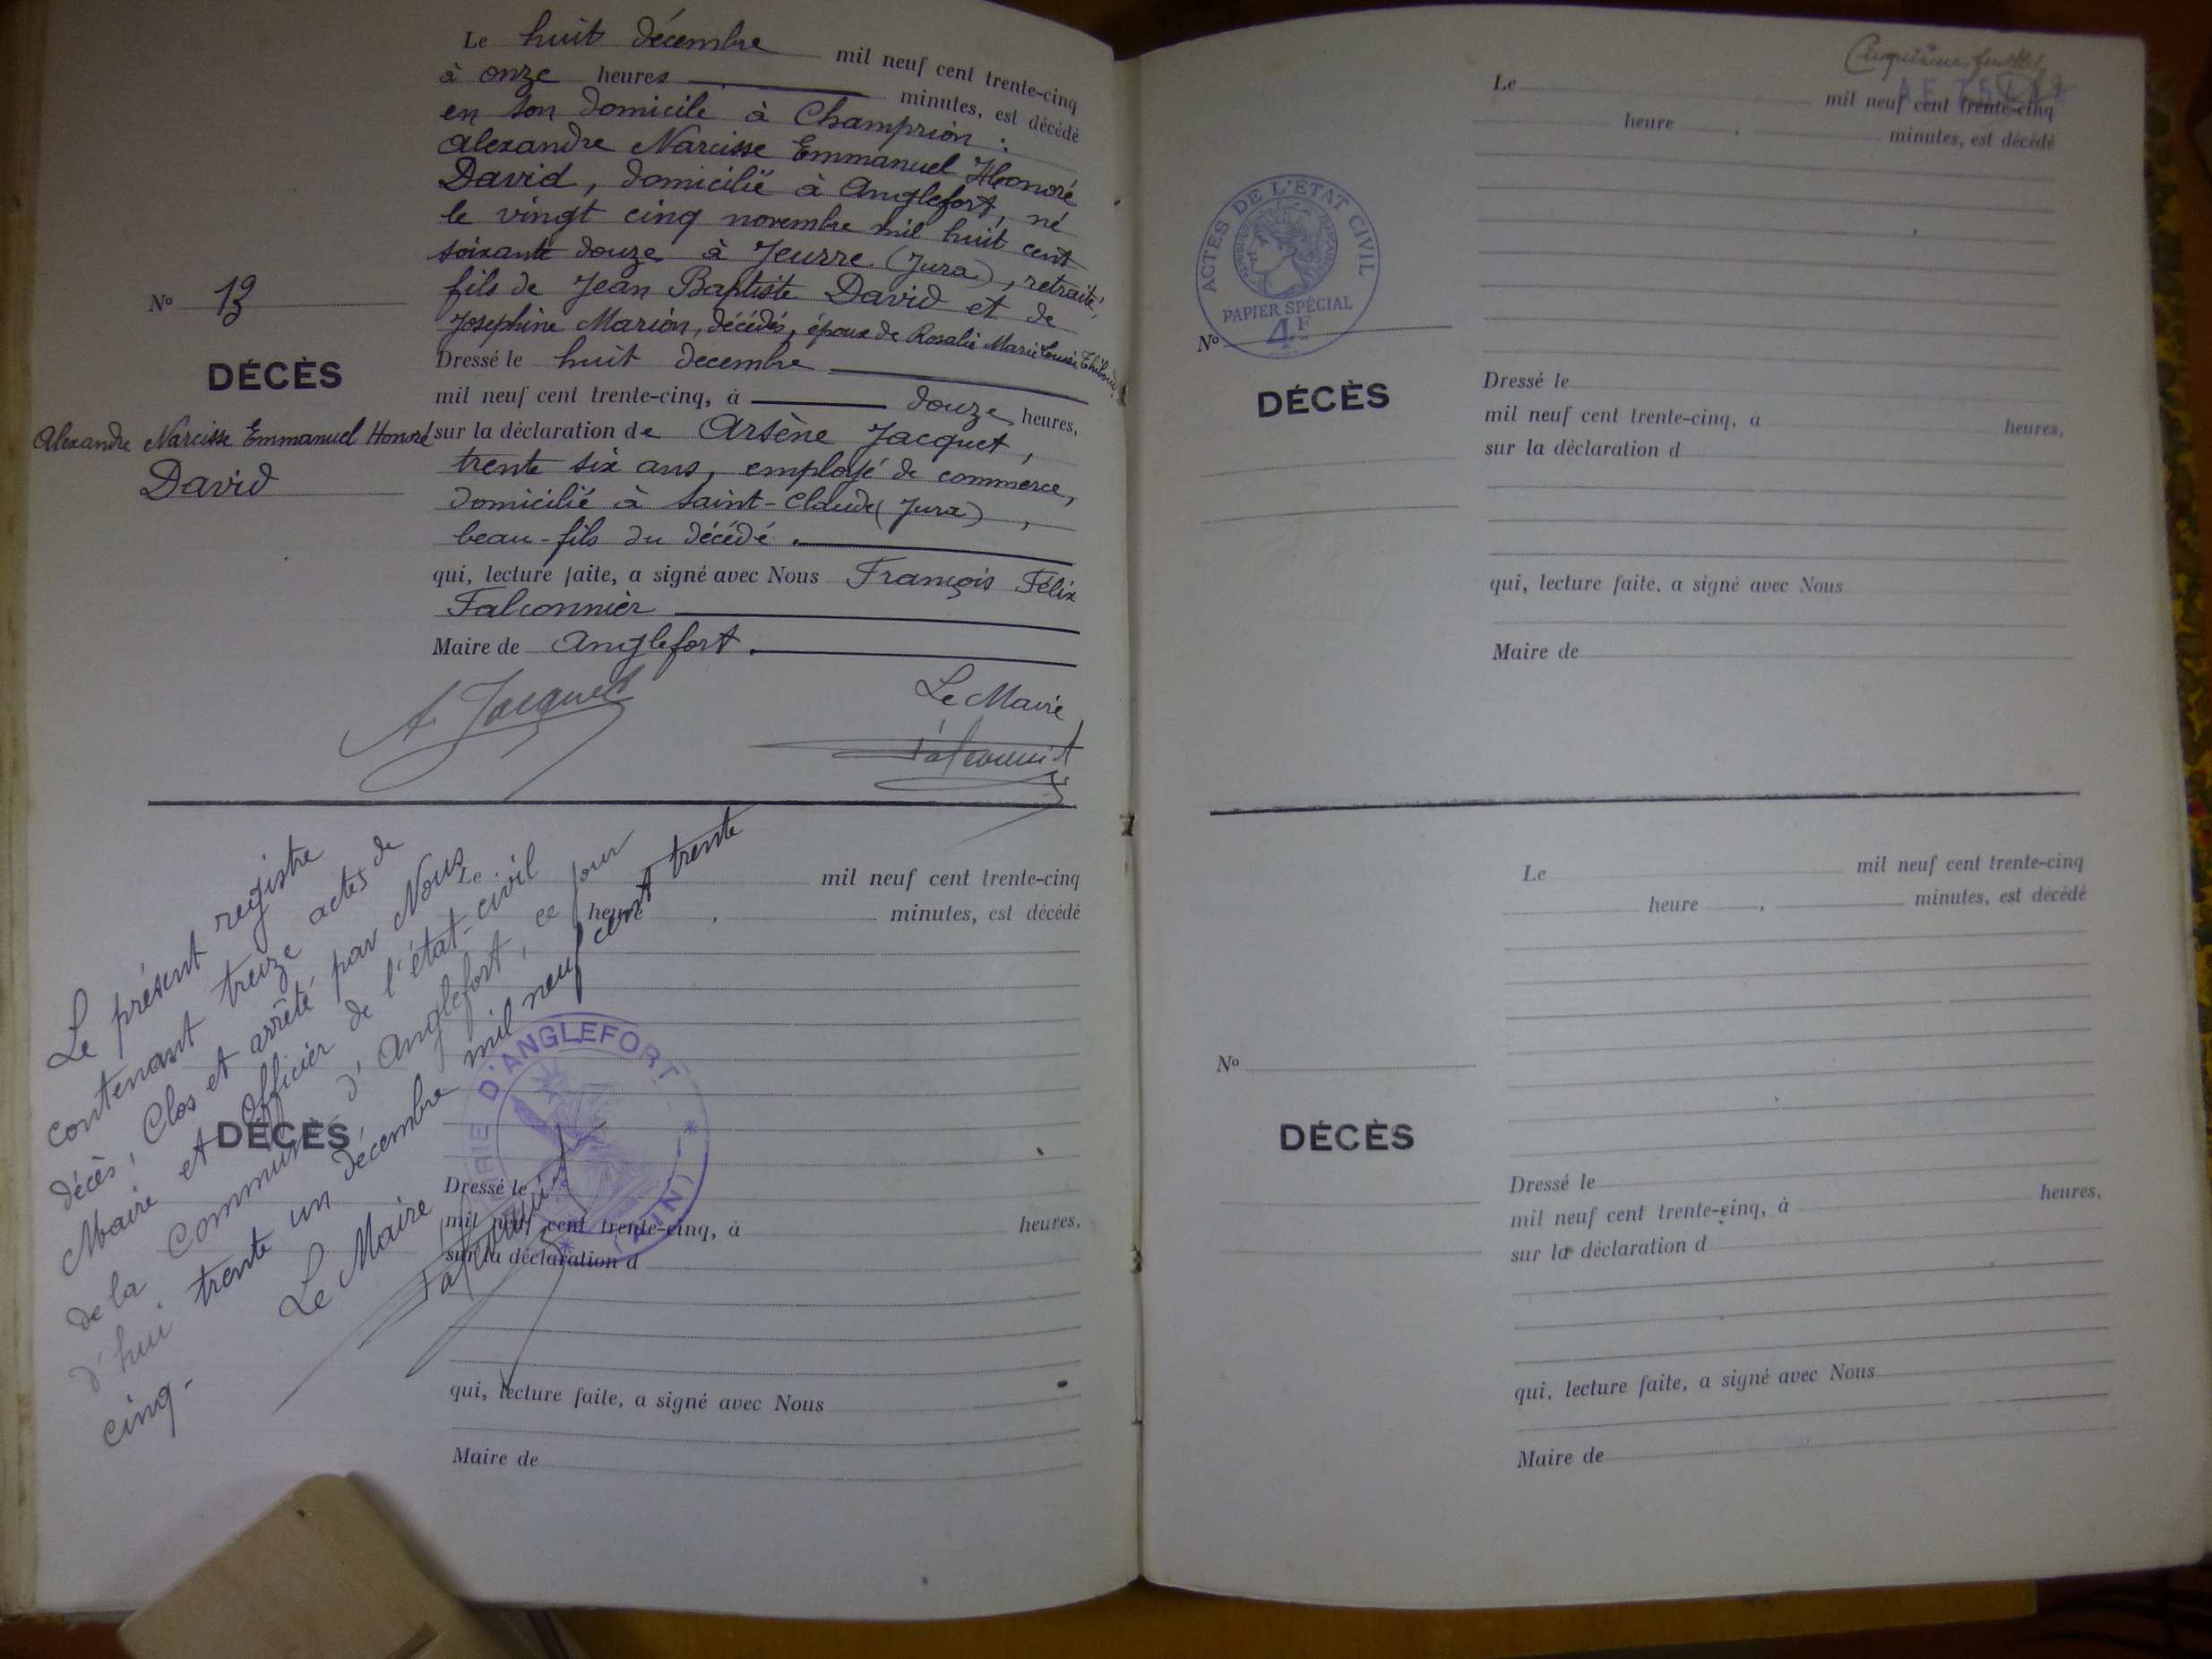 Le huit décembre mil neuf cent trente-cinq
à onze heures minutes, est décédé
en son domicile à Champrion :
Alexandre Narcisse Emmanuel Honoré
David, domicilié à Anglefort, né
le vingt cinq novembre mil huit cent
soixante douze à Jeurre (Jura), retraité,
fils de Jean Baptiste David et de
Josephine Marion, décédés, époux de Rosalie Marie Louise
Dressé le huit decembre
mil neuf cent trente-cinq, à douze heures,
sur la déclaration de Arsène Jacquet,
trente six ans, employé de commerce,
domicilié à Saint-Claude (Jura),
beau-fils du décédé.
qui, lecture faite, a signé avec Nous François Félix
Falconnier
Maire de Anglefort.
A. Jacquet
Le Maire
Nº 13
DÉCÈS
Alexandre Narcisse Emmanuel Honoré
David
Le présent registre
contenant treize actes de
décès, Clos et arrêté par Nous
Maire et Officier de l'état-civil
de la Commune d'Anglefort, ce jour
d'hui trente un décembre mil neuf cent trente
cinq.
Le Maire
D'ANGLEFORT
(AIN)
Le
mil neuf cent trente-cinq
heure , minutes, est décédé
DÉCÈS
Dressé le
mil neuf cent trente-cinq, à heures,
sur la déclaration d
qui, lecture faite, a signé avec Nous
Maire de
Le mil neuf cent trente-cinq
heure , minutes, est décédé
ACTES DE L'ÉTAT CIVIL
RÉPUBLIQUE FRANÇAISE
PAPIER SPÉCIAL
4F
Nº
DÉCÈS
Dressé le
mil neuf cent trente-cinq, à heures,
sur la déclaration d
qui, lecture faite, a signé avec Nous
Maire de
Le mil neuf cent trente-cinq
heure , minutes, est décédé
Nº
DÉCÈS
Dressé le
mil neuf cent trente-cinq, à heures,
sur la déclaration d
qui, lecture faite, a signé avec Nous
Maire de